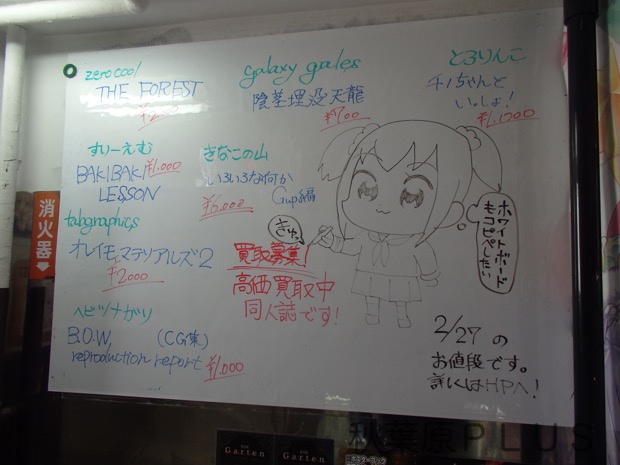 zerocool
THE FOREST
galaxy gales
陰茎埋没天龍
¥700
とろりんこ
チノちゃんと
いっしょ!
¥1,1200
すぃーえむ
BAKIBAKI ¥1,000
LESSON
きなこの山
いろいろな何か
Gup編
¥6,000
tabgraphics
オレイモマテリアルズ2
¥2000
ヘビツナガリ
B.O.W. (CG集)
reproduction report ¥1,000
買取募集!
高価買取中
同人誌です!
ホワイトボード
もコピペしたい
2/27 の
お値段です。
詳しくはHPへ!
消火器
Garten
Garten
秋葉原PLUS